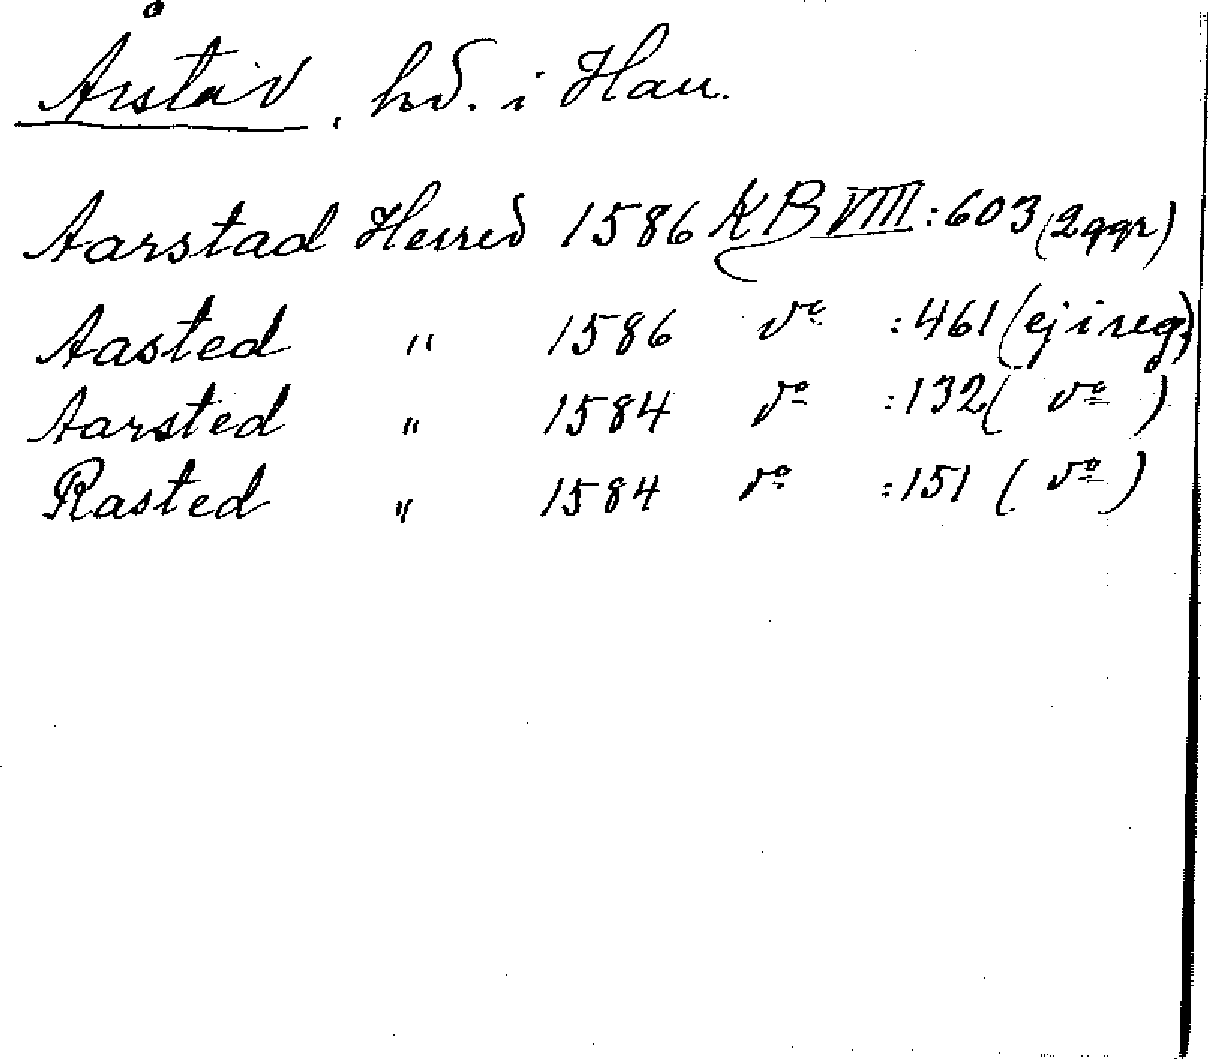 Årstad, hd. i Hall.
Aarstad Herred 1586 KB VIII:603 (2 ggr)
Aasted " 1586 do :461 (ej i reg.)
Aarsted " 1584 do :132 (do)
Rasted " 1584 do :151 (do)